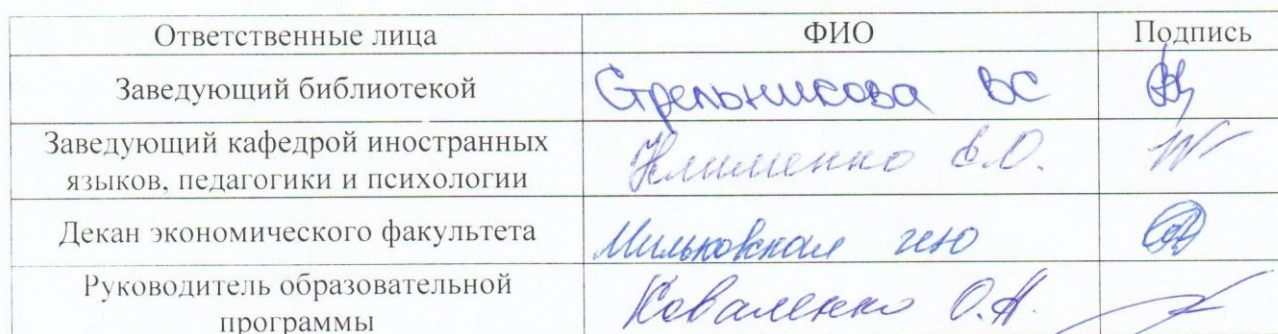 Ответственные лица ФИО Подпись
Заведующий библиотекой Стрельникова ВС
Заведующий кафедрой иностранных
языков, педагогики и психологии Клименко
Декан экономического факультета Мильковская
Руководитель образовательной
программы Коваленко О.А.